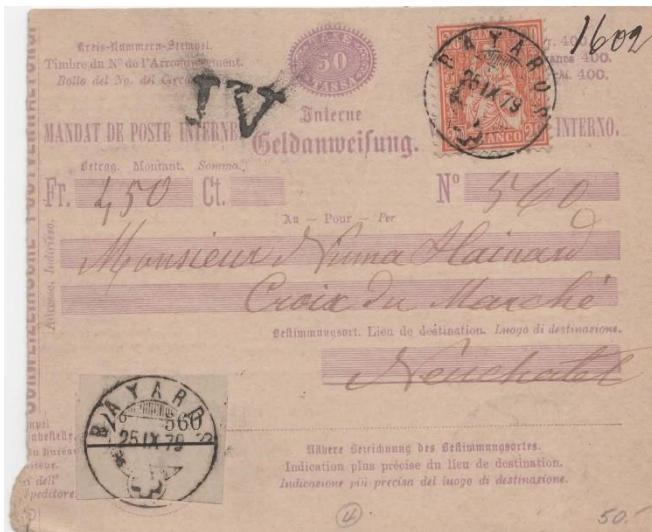 Kreis-Nummern-Stempel.
Timbre du Nº de l'Arrondissement.
Bollo del No. del
50
TASSE
400
400.
400.
1602
IV
BAYARDS
25 IX 79
FRANCO
MANDAT DE POSTE INTERNE
Interne
Geldanweisung.
INTERNO.
Betrag. Montant. Somma.
Fr. 450 Ct. Nº 560
An — Pour — Per
Adresse. Indirizzo.
Monsieur Numa Hainard
Croix du Marché
Bestimmungsort. Lieu de destination. Luogo di destinazione.
Neuchatel
BAYARDS
560
25 IX 79
Nähere Bezeichnung des Bestimmungsortes.
Indication plus précise du lieu de destination.
Indicazione più precisa del luogo di destinazione.
4
50.-